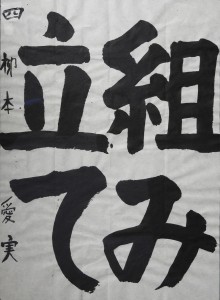 組み
立て
四 柳本 愛実